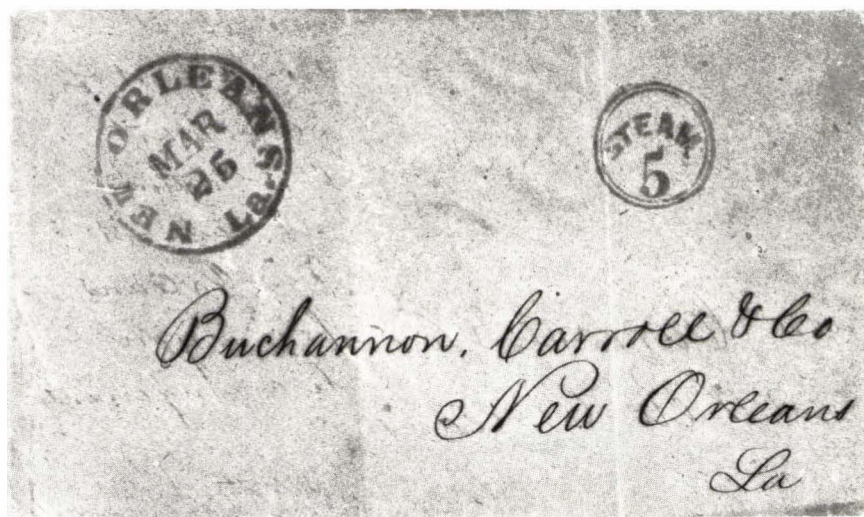 NEW ORLEANS La.
MAR
25
STEAM.
5
Buchannon, Carroll & Co
New Orleans
La